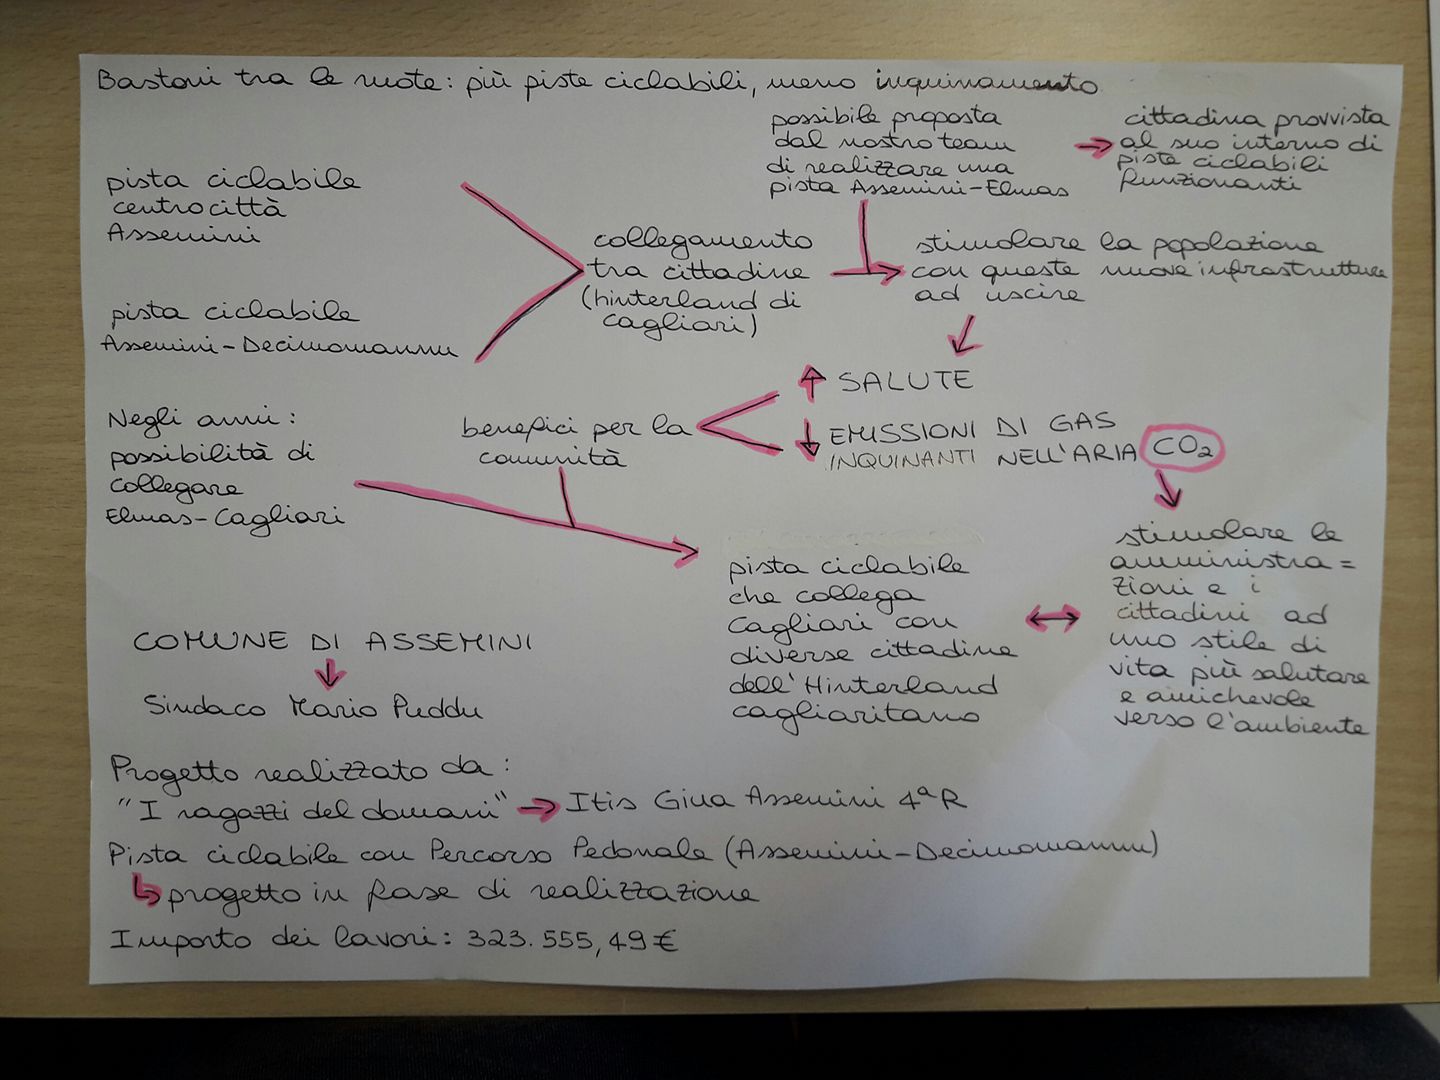 Bastoni tra le ruote: più piste ciclabili, meno inquinamento
possibile proposta
dal nostro team
di realizzare una
pista Assemini-Elmas
→ cittadina provvista
al suo interno di
piste ciclabili
funzionanti
pista ciclabile
centro città
Assemini
pista ciclabile
Assemini-Decimomannu
collegamento
tra cittadine
(hinterland di
cagliari)
stimolare la popolazione
con queste nuove infrastrutture
ad uscire
↑ SALUTE
↓ EMISSIONI DI GAS
INQUINANTI NELL'ARIA CO2
benefici per la
comunità
Negli anni:
possibilità di
collegare
Elmas-Cagliari
pista ciclabile
che collega
Cagliari con
diverse cittadine
dell'Hinterland
cagliaritano
↔
stimolare le
amministra=
zioni e i
cittadini ad
uno stile di
vita più salutare
e amichevole
verso l'ambiente
COMUNE DI ASSEMINI
↓
Sindaco Mario Puddu
Progetto realizzato da:
"I ragazzi del domani" → Itis Giua Assemini 4ªR
Pista ciclabile con Percorso Pedonale (Assemini-Decimomannu)
↳ progetto in fase di realizzazione
Importo dei lavori: 323.555,49€